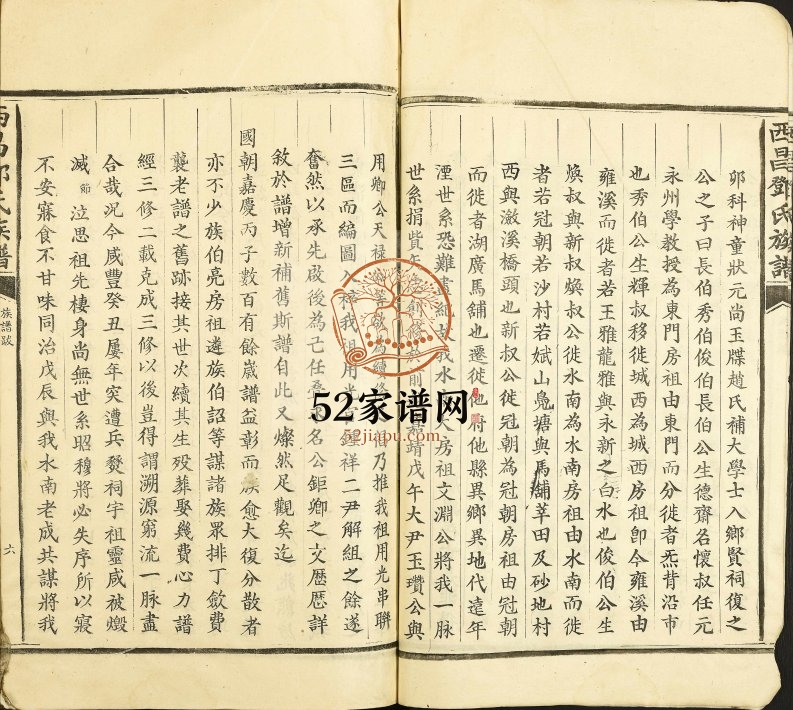 西昌鄧氏族譜
卯科神童狀元尚玉牒趙氏補大學士入鄉賢祠復之
公之子曰長伯秀伯俊伯長伯公生德齋名懷叔任元
永州學教授為東門房祖由東門而分徙者炁背沿市
也秀伯公生輝叔移徙城西為城西房祖卽今雍溪由
雍溪而徙者若王雅龍雅與永新之白水也俊伯公生
煥叔與新叔煥叔公徙水南為水南房祖由水南而徙
者若冠朝若沙村若斌山鳧塘與馬舖莘田及砂地村
西與漵溪橋頭也新叔公徙冠朝為冠朝房祖由冠朝
而徙者湖廣馬舖也遷徙他將他縣異鄉異地代遠年
湮世系恐難 我水 房祖文淵公將我一脉
世系捐貲 靖戊午大尹玉瓚公與
用卿公天祿 乃推我祖用光串聯
三區而編圖 我祖用光 祥二尹解組之餘遂
奮然以承先啟後為己任 名公鉅卿之文歷歷詳
敘於譜增新補舊斯譜自此又燦然足觀矣迄
國朝嘉慶丙子數百有餘嵗譜益彰而族愈大復分散者
亦不少族伯亮房祖遴族伯詔等謀諸族眾排丁歛費
襲老譜之舊跡接其世次續其生歿葬娶幾費心力譜
經三修二載克成三修以後豈得謂溯源窮流一脉盡
合哉況今咸豐癸丑屢年突遭兵燹祠宇祖靈咸被燬
滅節泣思祖先棲身尚無世系昭穆將必失序所以寢
不安寐食不甘味同治戊辰與我水南老成共謀將我
西昌鄧氏族譜
族譜跋
六
52家谱网
52jiapu.com